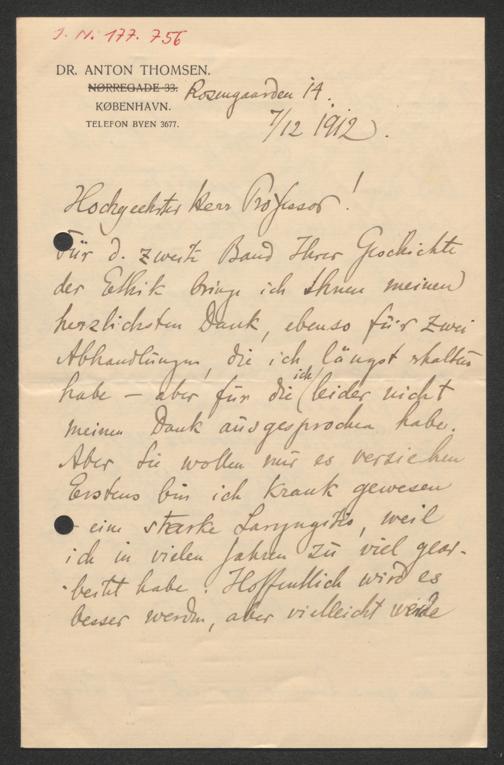 J. N. 177.756
DR. ANTON THOMSEN.
NØRREGADE 33. Rosengaarden 14.
KØBENHAVN.
TELEFON BYEN 3677.
7/12 1912.
Hochgeehrter Herr Professor!
Für d. zweite Band Ihrer Geschichte
der Ethik bringe ich Ihnen meinen
herzlichsten Dank, ebenso für zwei
Abhandlungen, die ich längst erhalten
habe – aber für die ich leider nicht
meinen Dank ausgesprochen habe.
Aber Sie wollen mir es verziehen
Erstens bin ich krank gewesen
– eine starke Laryngitis, weil
ich in vielen Jahren zu viel gear-
beitet habe. Hoffentlich wird es
besser werden, aber vielleicht werde